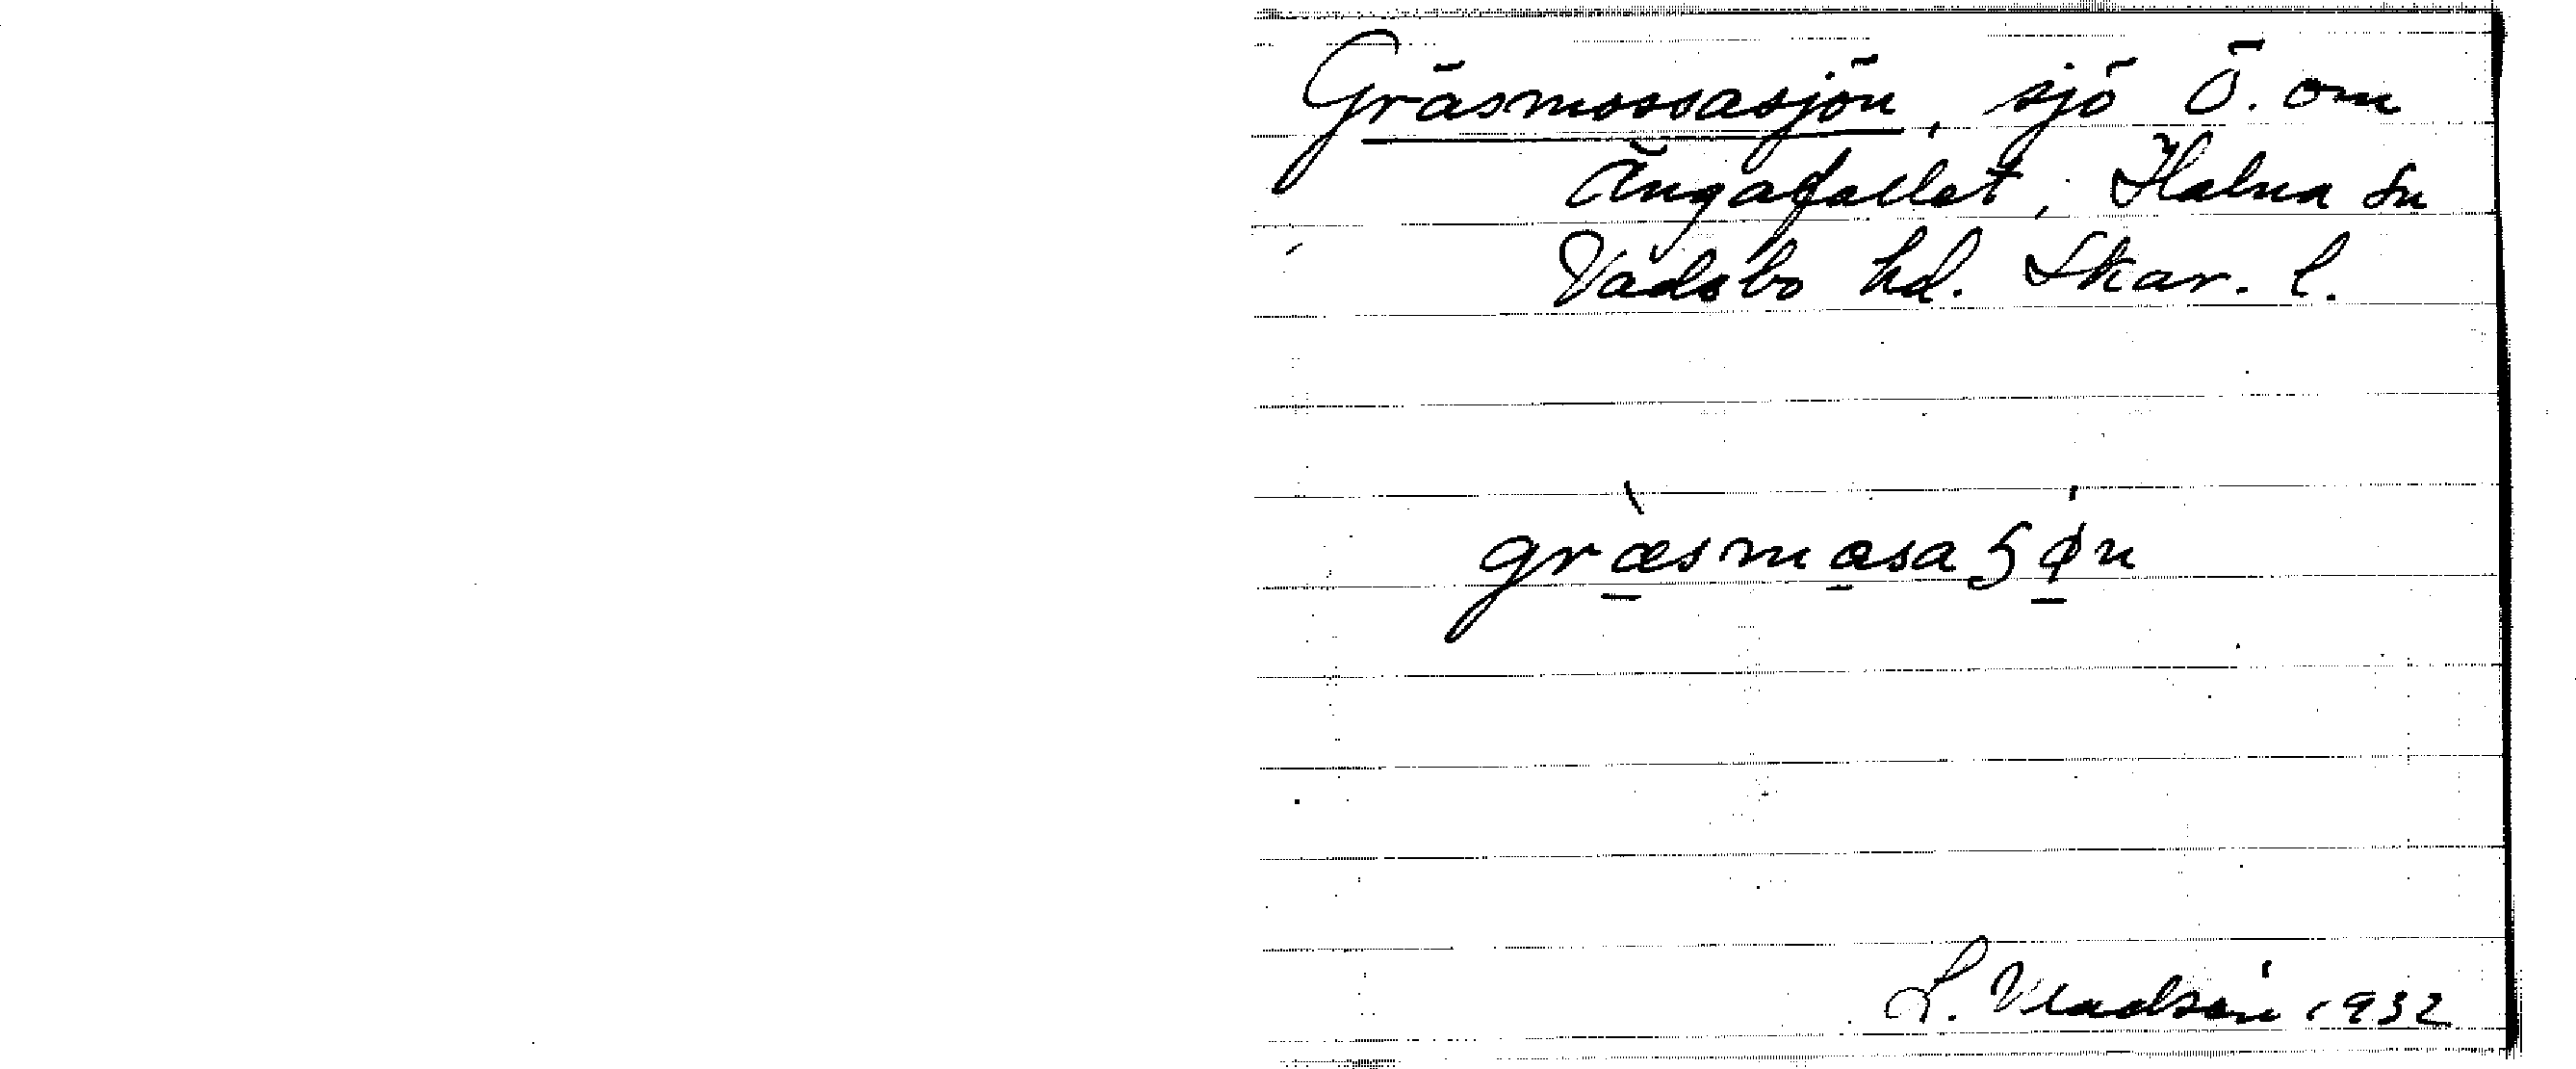 Gräsmossasjön, sjö Ö. om
Ängafallet, Halna sn
Vadsbo hd. Skar. l.
græsmɔsaʂø̀n
1932